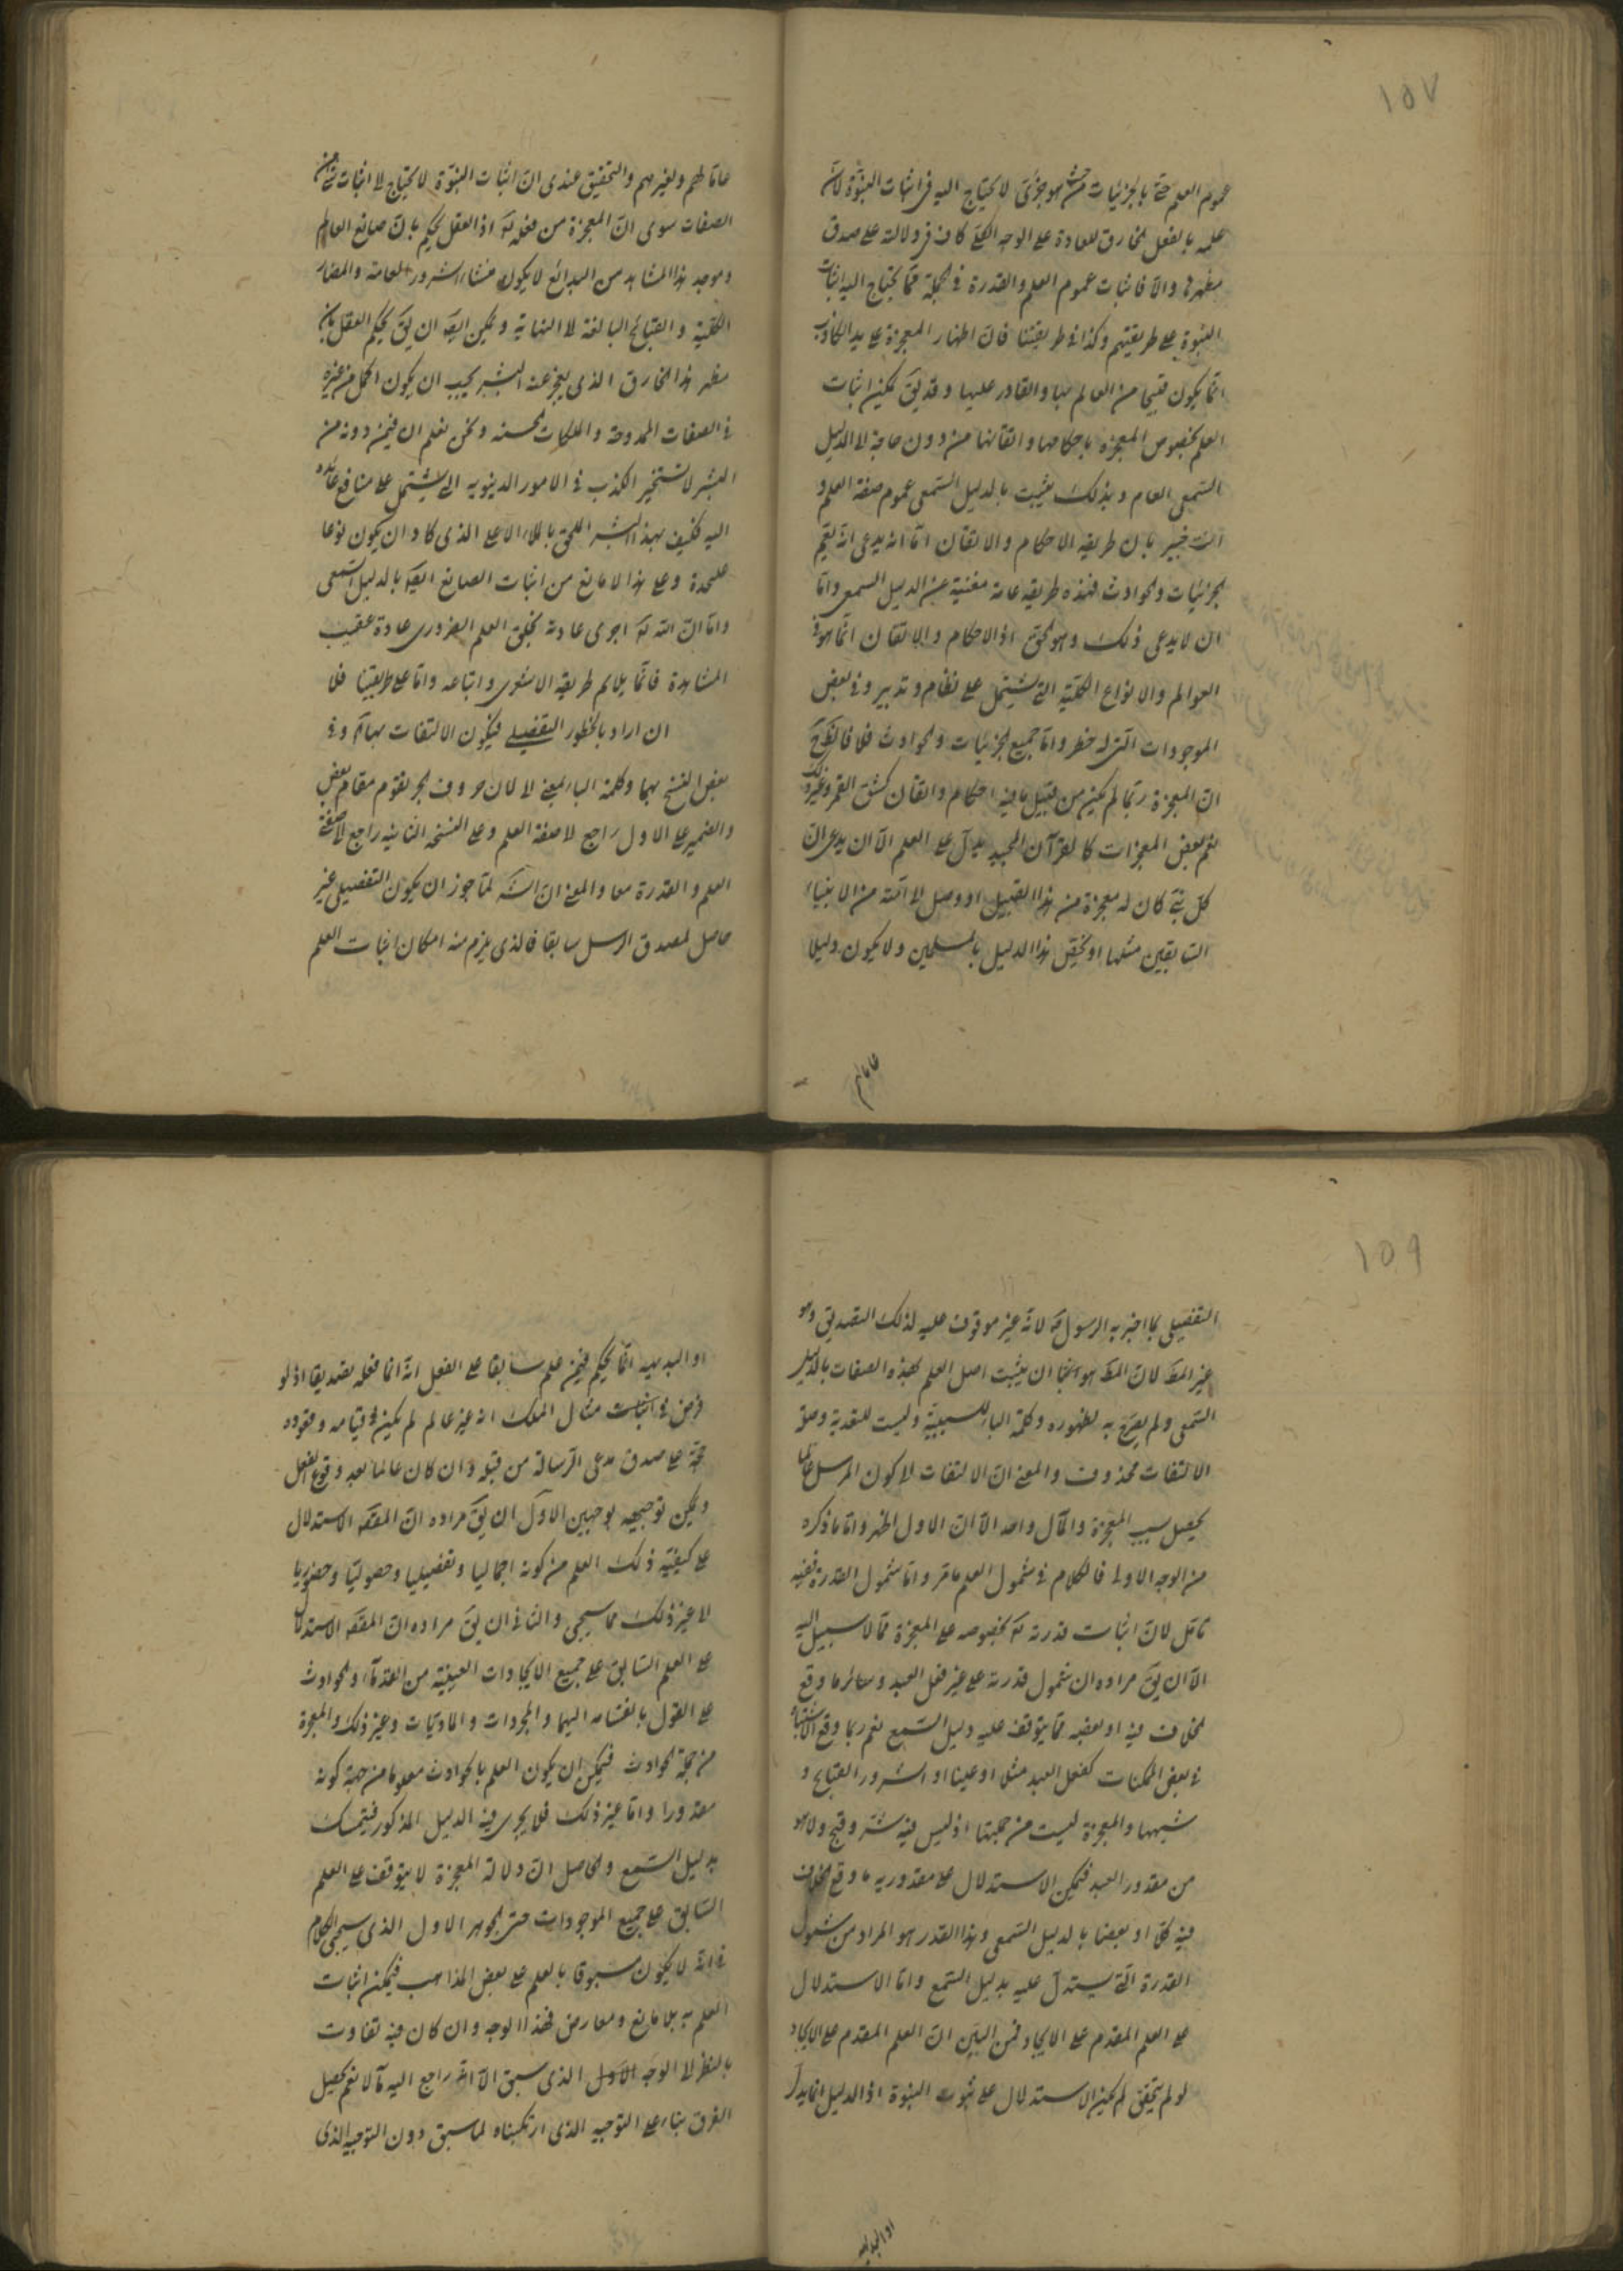 ١٥٧
عموم العلم حتى بالجزئيات من حيث هو جزئي لا يحتاج اليه في اثبات النبوة لان
علمه بالفعل الخارق للعادة على الوجه الكلي كاف في دلالته على صدق
مظهرها والا فاثبات عموم العلم والقدرة في الجملة مما يحتاج اليه اثبات
النبوة على طريقتهم وكذا في طريقتنا فان اظهار المعجزة على يد الكاذب
انما يكون قبيحا من العالم بها والقادر عليها وقد يق يمكن اثبات
العلم بخصوص المعجزة باحكامها واتقانها من دون حاجة لا الدليل
السمعي العام وبذلك يثبت بالدليل السمعي عموم صفة العلم و
انت خبير بان طريقه الاحكام والاتقان اما انه يدعى انه يعم
الجزئيات والحوادث فهذه طريقه عامة مغنية عن الدليل السمعي واما
ان لا يدعى ذلك وهو الحق اذ الاحكام والاتقان انما هو في
العوالم والانواع الكلية التي يشتمل على نظام وتدبير وفي بعض
الموجودات التي له خطر واما جميع الجزئيات والحوادث فلا فالحق
ان المعجزة ربما لم يكن من قبيل ما فيه احكام واتقان كشق القمر وغير ذلك
نعم بعض المعجزات كالقرآن المجيد يدل على العلم الا ان يدعى ان
كل نبي كان له معجزة من هذا القبيل او وصل الى امته من الانبياء
السابقين مثلها او يختص هذا الدليل بالمسلمين ولا يكون دليلا
عاما لهم
عاما لهم ولغيرهم والتحقيق عندي ان اثبات النبوة لا يحتاج لا اثبات شئ من
الصفات سوى ان المعجزة من فعله تع اذ العقل يحكم بان صانع العالم
وموجد هذا المشاهد من البدائع لا يكون منشاء الشرور العامة والمضار
الكلية والقبائح البالغة لا النهاية ويمكن ايض ان يق يحكم العقل بان
مظهر هذا الخارق الذي يعجز عنه البشر يجب ان يكون اكمل من غيره
في الصفات الممدوحة والملكات الحسنه ونحن نعلم ان فيمن دونه من
البشر لا يستخير الكذب في الامور الدينويه التي يشتمل على منافع عائده
اليه فكيف بهذا البشر الملحق بالملاء الاعلى الذي كاد ان يكون نوعا
عليحدة وعلى هذا لا مانع من اثبات الصانع ايض بالدليل السمعي
واما ان الله تع اجرى عادته بخلق العلم الضروري عادة عقيب
المشاهدة فانما يلائم طريقه الاشعري واتباعه واما على طريقتنا فلا
ان اراد بالخطور التفصيلي فيكون الالتفات بهما وفي
بعض النسخ بهما وكلمة الباء بمعنى لا لان حروف الجر يقوم مقام بعض
والضمير على الاول راجع لا صفة العلم وعلى النسخه الثانيه راجع لا صفتي
العلم والقدرة معا والمعنى ان الش لما جوز ان يكون التفصيلي غير
حاصل لمصدق الرسل سابقا فالذي يلزم منه امكان اثبات العلم
١٥٩
التفصيلي بما اخبر به الرسول ص لانه غير موقوف عليه لذلك التصديق وهو
غير المط لان المط هو انما ان يثبت اصل العلم بهذه الصفات بالدليل
السمعي ولم يصرح به لظهوره وكلمة الباء للسببية وليست للتعدية وصلة
الالتفات محذوف والمعنى ان الالتفات لا كون المرسل عالما
يحصل بسبب المعجزة والمآل واحد الا ان الاول اظهر واما ما ذكره
من الوجه الاول فالكلام في شمول العلم ما مر واما شمول القدرة ففيه
تامل لان اثبات قدرته تع بخصوصه على المعجزة مما لا سبيل اليه
الا ان يق مراده ان شمول قدرته على غير فعل العبد وسائر ما وقع
الخلاف فيه او بعضه مما يتوقف عليه دليل السمع نعم ربما وقع الاشتباه
في بعض الممكنات كفعل العبد مثلا او عينا او الشرور القبائح و
شبهها والمعجزة ليست من جملتها اذ ليس فيه شر وقبح ولا هو
من مقدور العبد فيمكن الاستدلال على مقدوريه ما وقع الخلاف
فيه كلا او بعضا بالدليل السمعي وهذا القدر هو المراد من شمول
القدرة التي يستدل عليه بدليل السمع واما الاستدلال
على العلم المقدم على الايجاد فمن البين ان العلم المقدم على الايجاد
لو لم يتحقق لم يمكن الاستدلال على ثبوت النبوة اذ الدليل انما يدل
او البديهه
او البديهه انما يحكم فيمن علم سابقا على الفعل انه انما فعله تصديقا اذ لو
فرض في اثبات مثال الملك انه غير عالم لم يكن في قيامه وقعوده
حجة على صدق مدعى الرسالة من قبله وان كان عالما بعد وقوع الفعل
ويمكن توجيهه بوجهين الاول ان يق مراده ان المقصد الاستدلال
على كيفية ذلك العلم من كونه اجماليا وتفصيليا وحصوليا وحضوريا
لا غير ذلك مما سيجئ والثاني ان يق مراده ان المقصد الاستدلال
على العلم السابق على جميع الايجادات العينية من القدماء والحوادث
على القول بانقسامه اليهما والمجردات والماديات وغير ذلك والمعجزة
من جملة الحوادث فيمكن ان يكون العلم بالحوادث معلوما من جهة كونه
مقدورا واما غير ذلك فلا يجرى فيه الدليل المذكور فيتمسك
بدليل السمع والحاصل ان دلالة المعجزة لا يتوقف على العلم
السابق على جميع الموجودات حتى الجوهر الاول الذي سيجئ الكلام
في انه لا يكون مسبوقا بالعلم على بعض المذاهب فيمكن اثبات
العلم به بلا مانع ومعارض فهذا الوجه وان كان فيه تفاوت
بالنظر لا الوجه الاول الذي سبق الا انه راجع اليه مآلا نعم يحصل
الفرق بناء على التوجيه الذي ارتكبناه لما سبق دون التوجيه الذي